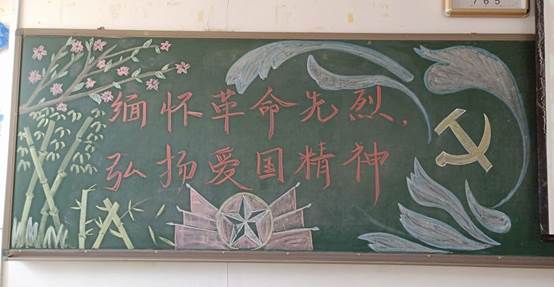 765
缅怀革命先烈，
弘扬爱国精神